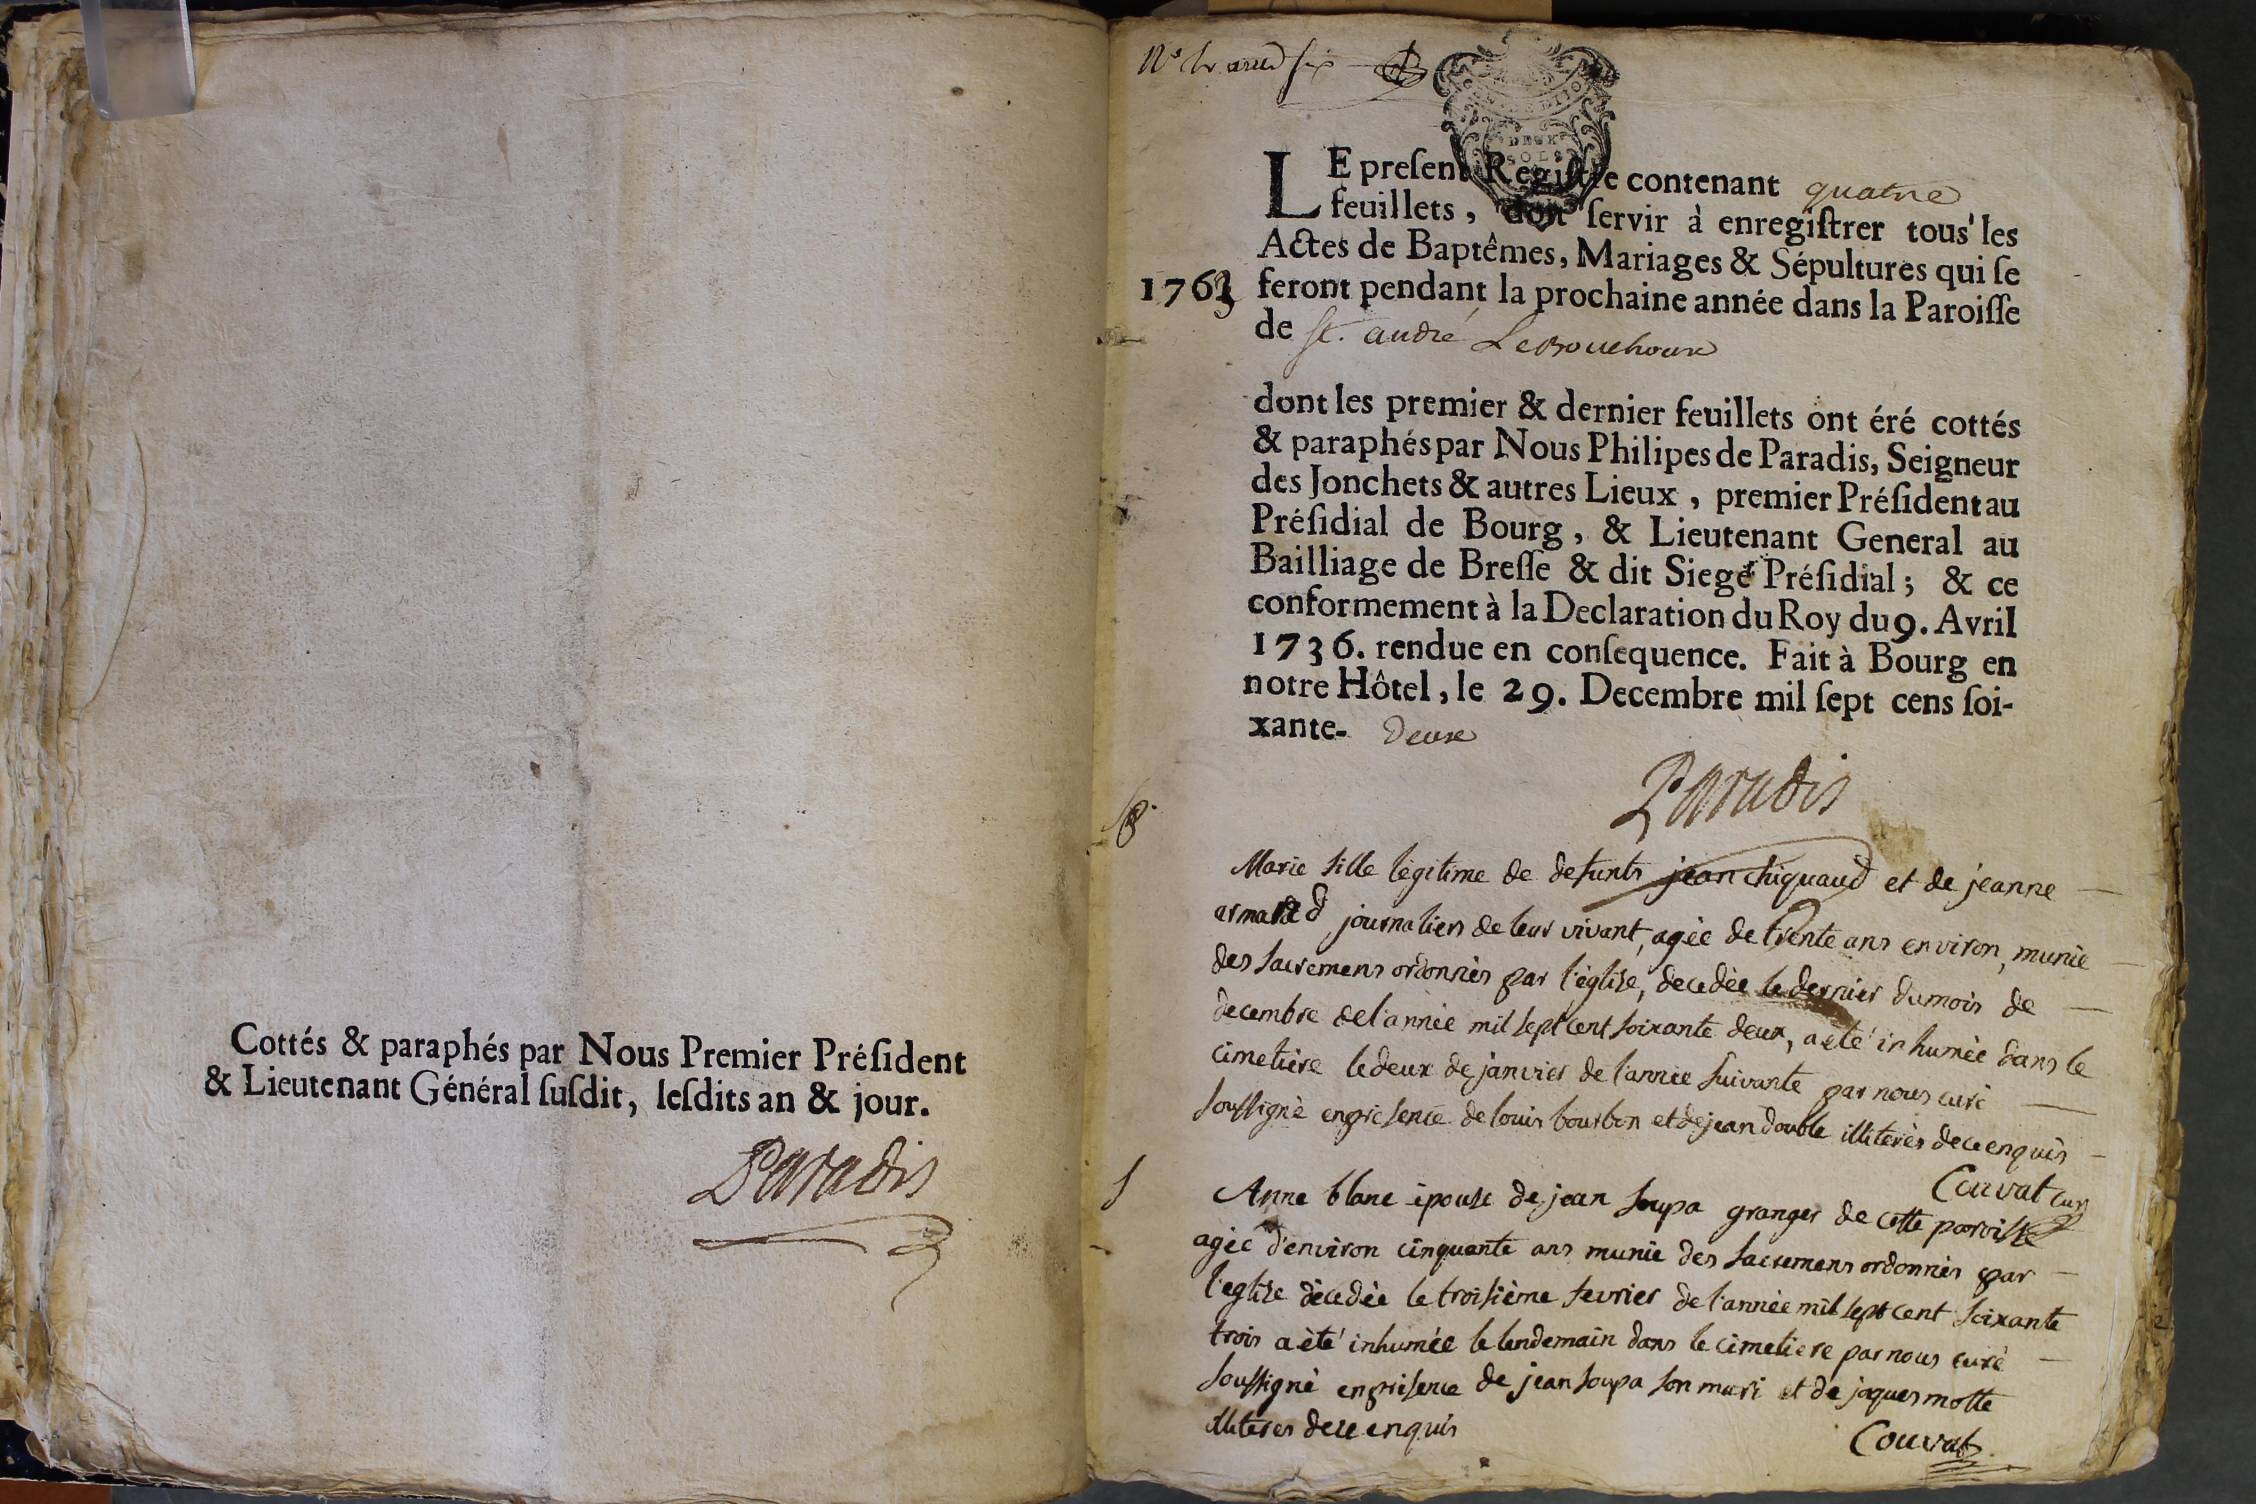 Cottés & paraphés par Nous Premier Préſident
& Lieutenant Général ſuſdit, leſdits an & jour.
Paradis
1763
LE preſent Regiſtre contenant quatre
feuillets, doit ſervir à enregiſtrer tous les
Actes de Baptêmes, Mariages & Sépultures qui ſe
feront pendant la prochaine année dans la Paroiſſe
de St. andré Le Bouchoux
dont les premier & dernier feuillets ont éré cottés
& paraphés par Nous Philipes de Paradis, Seigneur
des Jonchets & autres Lieux, premier Préſident au
Préſidial de Bourg, & Lieutenant General au
Bailliage de Breſſe & dit Siege Préſidial; & ce
conformement à la Declaration du Roy du 9. Avril
1736. rendue en conſequence. Fait à Bourg en
notre Hôtel, le 29. Decembre mil ſept cens ſoi-
xante- deux
Paradis
Marie fille legitime de defunts jean chiquaud et de jeanne
journaliers de leur vivant, agée de trente ans environ, munie
des sacremens ordonnés par l'église, decedée le dernier du mois de
decembre de l'année mil sept cent soixante deux, a eté inhumée dans le
cimetiere le deux de janvier de l'année suivante par nous curé
soussigné en presence de louis bourbon et de jean double illiterés de ce enquis
Couvat cur
S
Anne blanc épouse de jean soupa granger de cette paroisse
agée d'environ cinquante ans munie des sacremens ordonnés par
l'eglise décedée le troisième fevrier de l'année mil sept cent soixante
trois a été inhumée le lendemain dans le cimetiere par nous curé
soussigné en presence de jean soupa son mari et de jaques motte
illiteres de ce enquis
Couvat